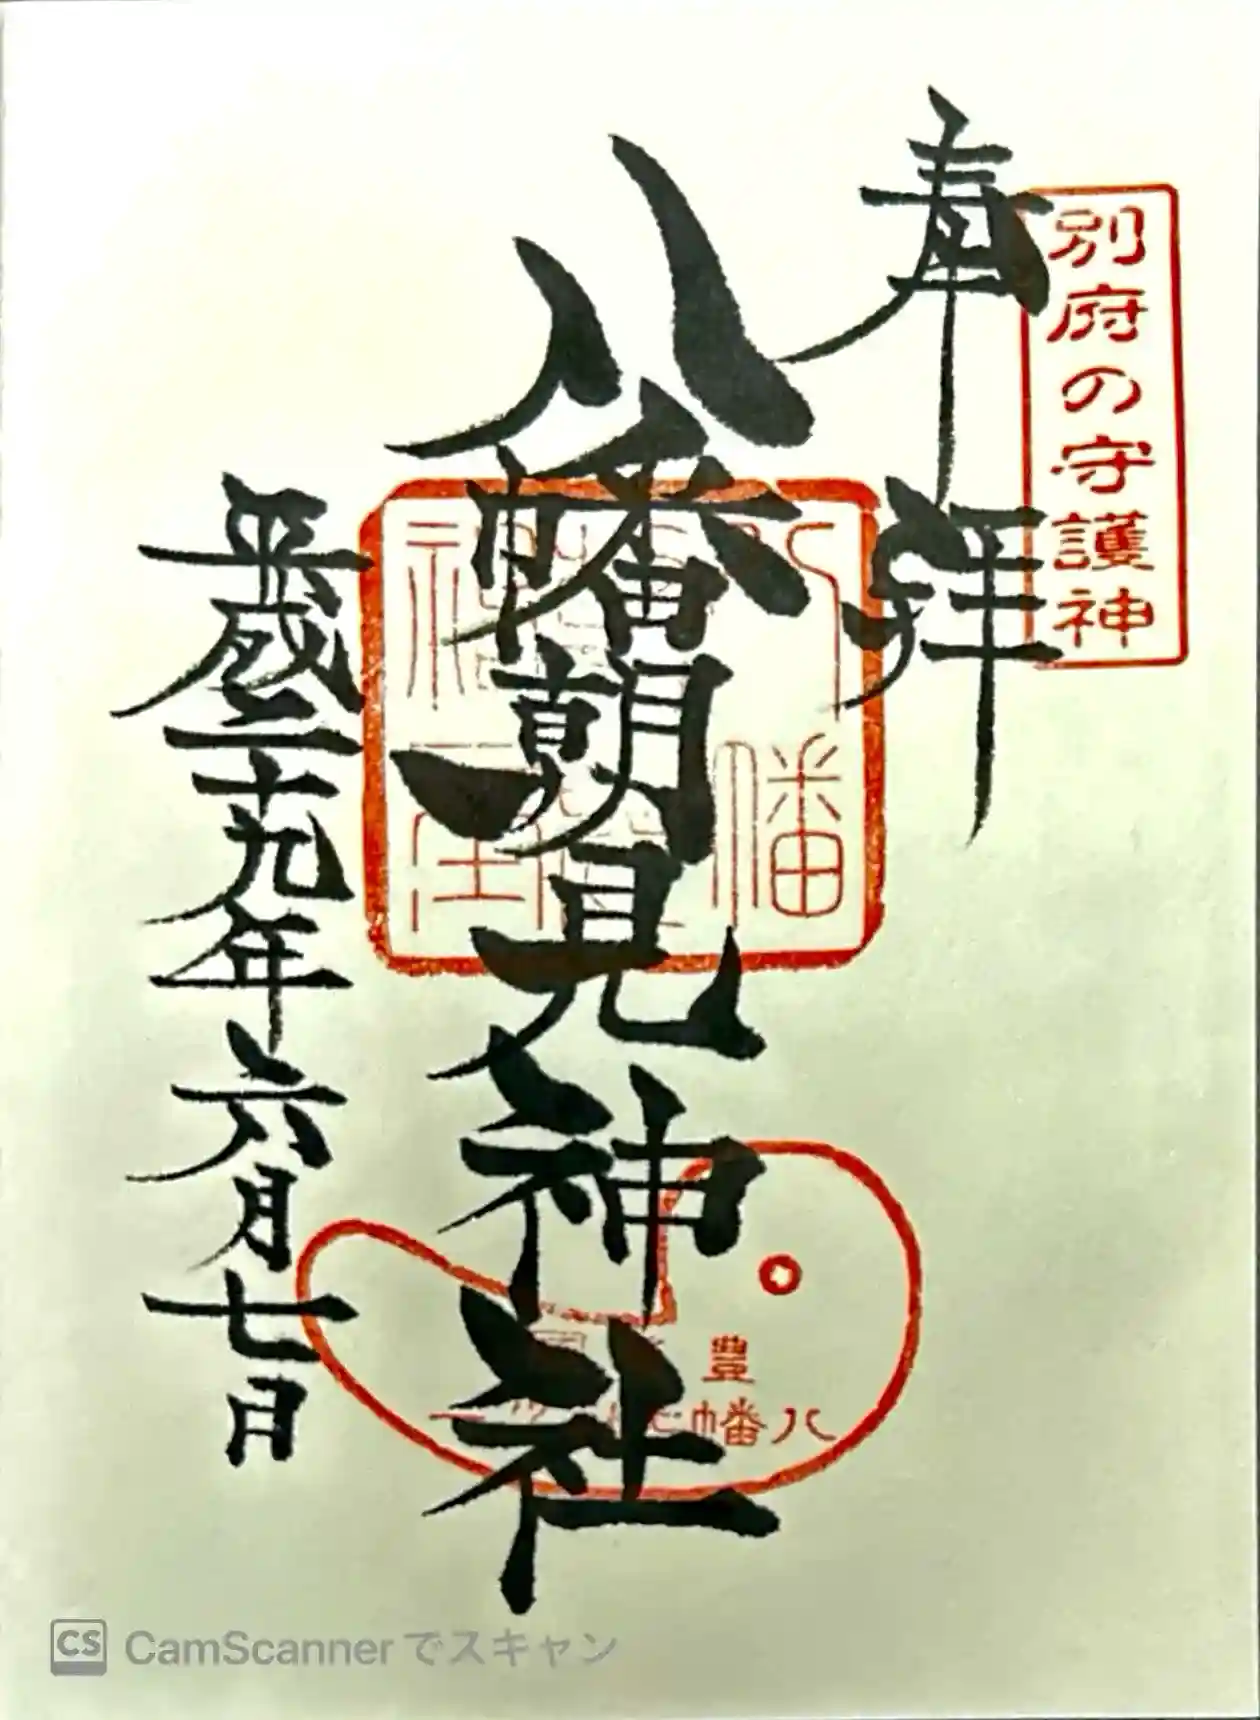 別府の守護神
奉拝
八幡朝見神社
平成二十九年六月七日
八幡
豊
八幡
CS CamScannerでスキャン